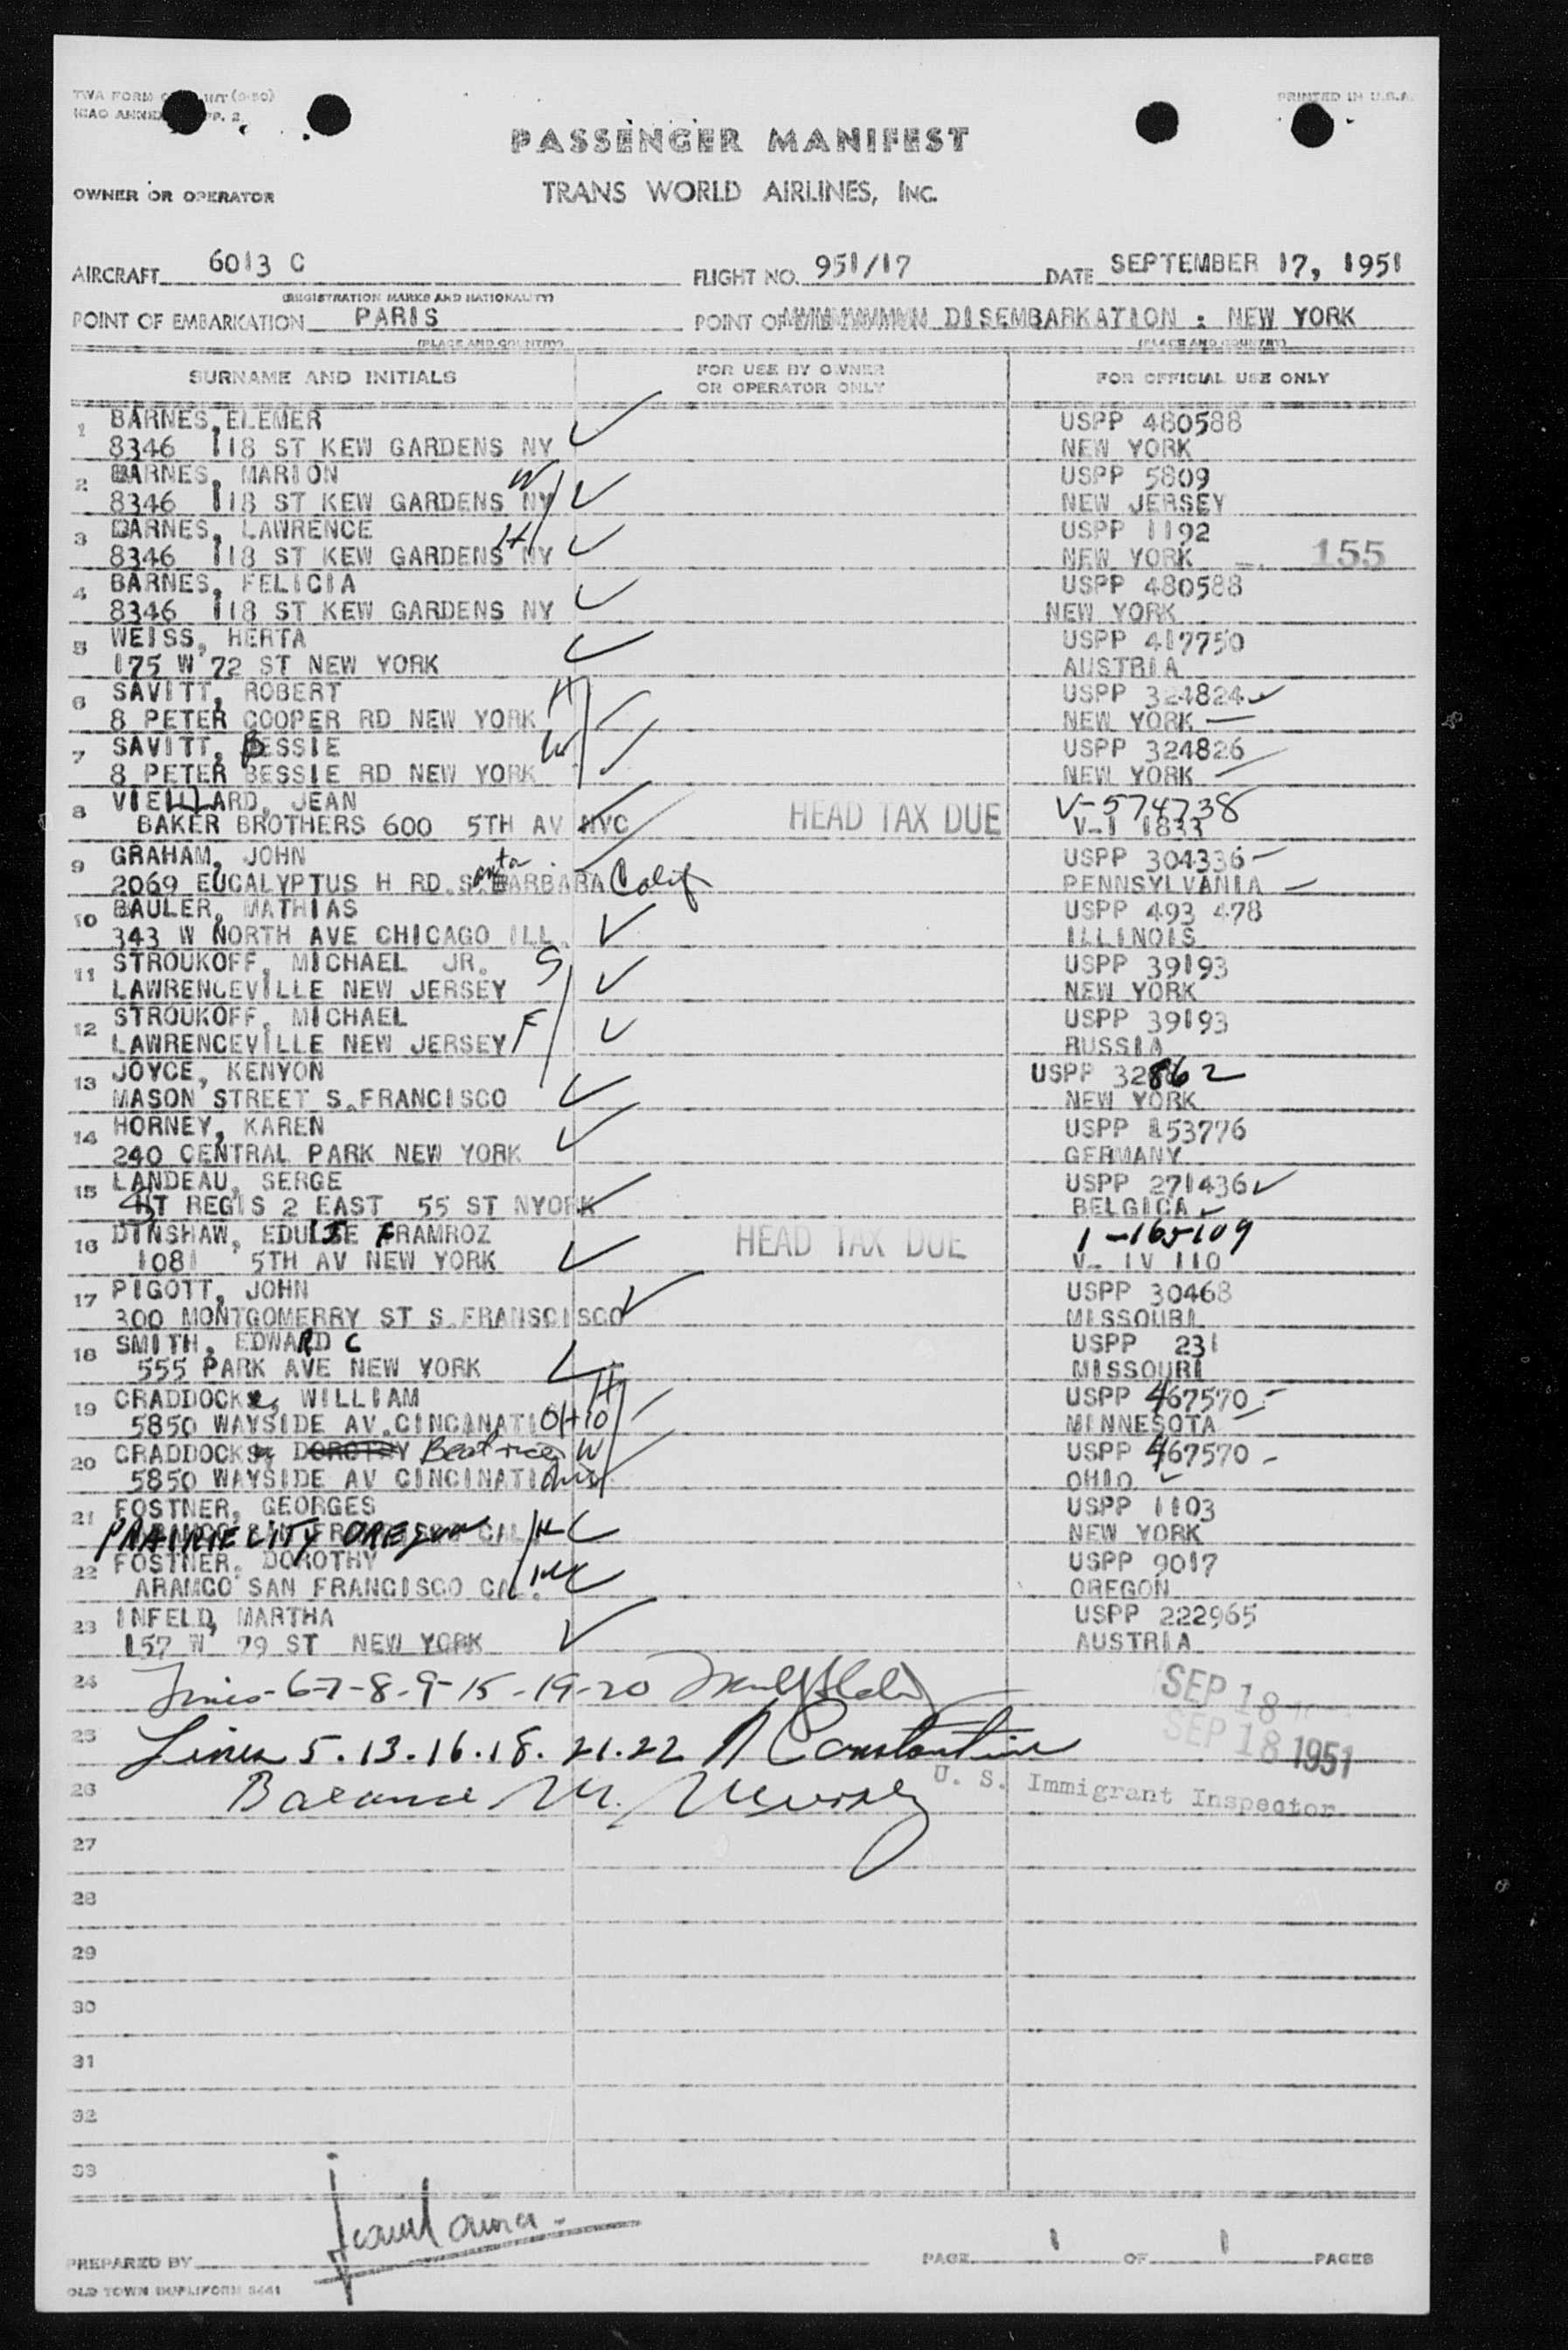 PRINTED IN U.S.A.
PASSENGER MANIFEST
OWNER OR OPERATOR TRANS WORLD AIRLINES, INC.
AIRCRAFT 6013 C FLIGHT NO. 951/17 DATE SEPTEMBER 17, 1951
(REGISTRATION MARKS AND NATIONALITY)
POINT OF EMBARKATION PARIS POINT OF DISEMBARKATION : NEW YORK
(PLACE AND COUNTRY) (PLACE AND COUNTRY)
SURNAME AND INITIALS FOR USE BY OWNER OR OPERATOR ONLY FOR OFFICIAL USE ONLY
1 BARNES, ELEMER USPP 480588
8346 118 ST KEW GARDENS NY NEW YORK
2 BARNES, MARION W USPP 5809
8346 118 ST KEW GARDENS NY NEW JERSEY
3 BARNES, LAWRENCE H USPP 1192
8346 118 ST KEW GARDENS NY NEW YORK 155
4 BARNES, FELICIA USPP 480588
8346 118 ST KEW GARDENS NY NEW YORK
5 WEISS, HERTA USPP 417750
175 W 72 ST NEW YORK AUSTRIA
6 SAVITT, ROBERT H USPP 324824
8 PETER COOPER RD NEW YORK NEW YORK
7 SAVITT, BESSIE W USPP 324826
8 PETER BESSIE RD NEW YORK NEW YORK
8 VIEILLARD, JEAN V-574738
BAKER BROTHERS 600 5TH AV NYC HEAD TAX DUE V-I 1833
9 GRAHAM, JOHN USPP 304336
2069 EUCALYPTUS H RD. Santa BARBARA Calif PENNSYLVANIA
10 BAULER, MATHIAS USPP 493 478
343 W NORTH AVE CHICAGO ILL. ILLINOIS
11 STROUKOFF, MICHAEL JR. S USPP 39193
LAWRENCEVILLE NEW JERSEY NEW YORK
12 STROUKOFF, MICHAEL F USPP 39193
LAWRENCEVILLE NEW JERSEY RUSSIA
13 JOYCE, KENYON USPP 32862
MASON STREET S.FRANCISCO NEW YORK
14 HORNEY, KAREN USPP 153776
240 CENTRAL PARK NEW YORK GERMANY
15 LANDEAU, SERGE USPP 271436
ST REGIS 2 EAST 55 ST NYORK BELGICA
16 DINSHAW, EDULJE FRAMROZ HEAD TAX DUE 1-165109
1081 5TH AV NEW YORK V- IV 110
17 PIGOTT, JOHN USPP 30468
300 MONTGOMERRY ST S.FRANSCISCO MISSOURI
18 SMITH, EDWARD C USPP 231
555 PARK AVE NEW YORK MISSOURI
19 CRADDOCK, WILLIAM H USPP 467570
5850 WAYSIDE AV.CINCINATI OHIO MINNESOTA
20 CRADDOCK, DOROTHY Beatrice W USPP 467570
5850 WAYSIDE AV CINCINATI Ohio OHIO
21 FOSTNER, GEORGES USPP 1103
PRAIRIE CITY OREGON CAL H NEW YORK
22 FOSTNER, DOROTHY USPP 9017
ARAMCO SAN FRANCISCO CAL. OREGON
23 INFELD, MARTHA USPP 222965
157 W 79 ST NEW YORK AUSTRIA
24 Lines-6-7-8-9-15-19-20 SEP 18
25 Lines 5.13.16.18.21.22 Constantine SEP 18 1951
26 Balance M. Murray U. S. Immigrant Inspector
27
28
29
30
31
32
33
PREPARED BY PAGE 1 OF 1 PAGES
OLD TOWN DUPLIFORM